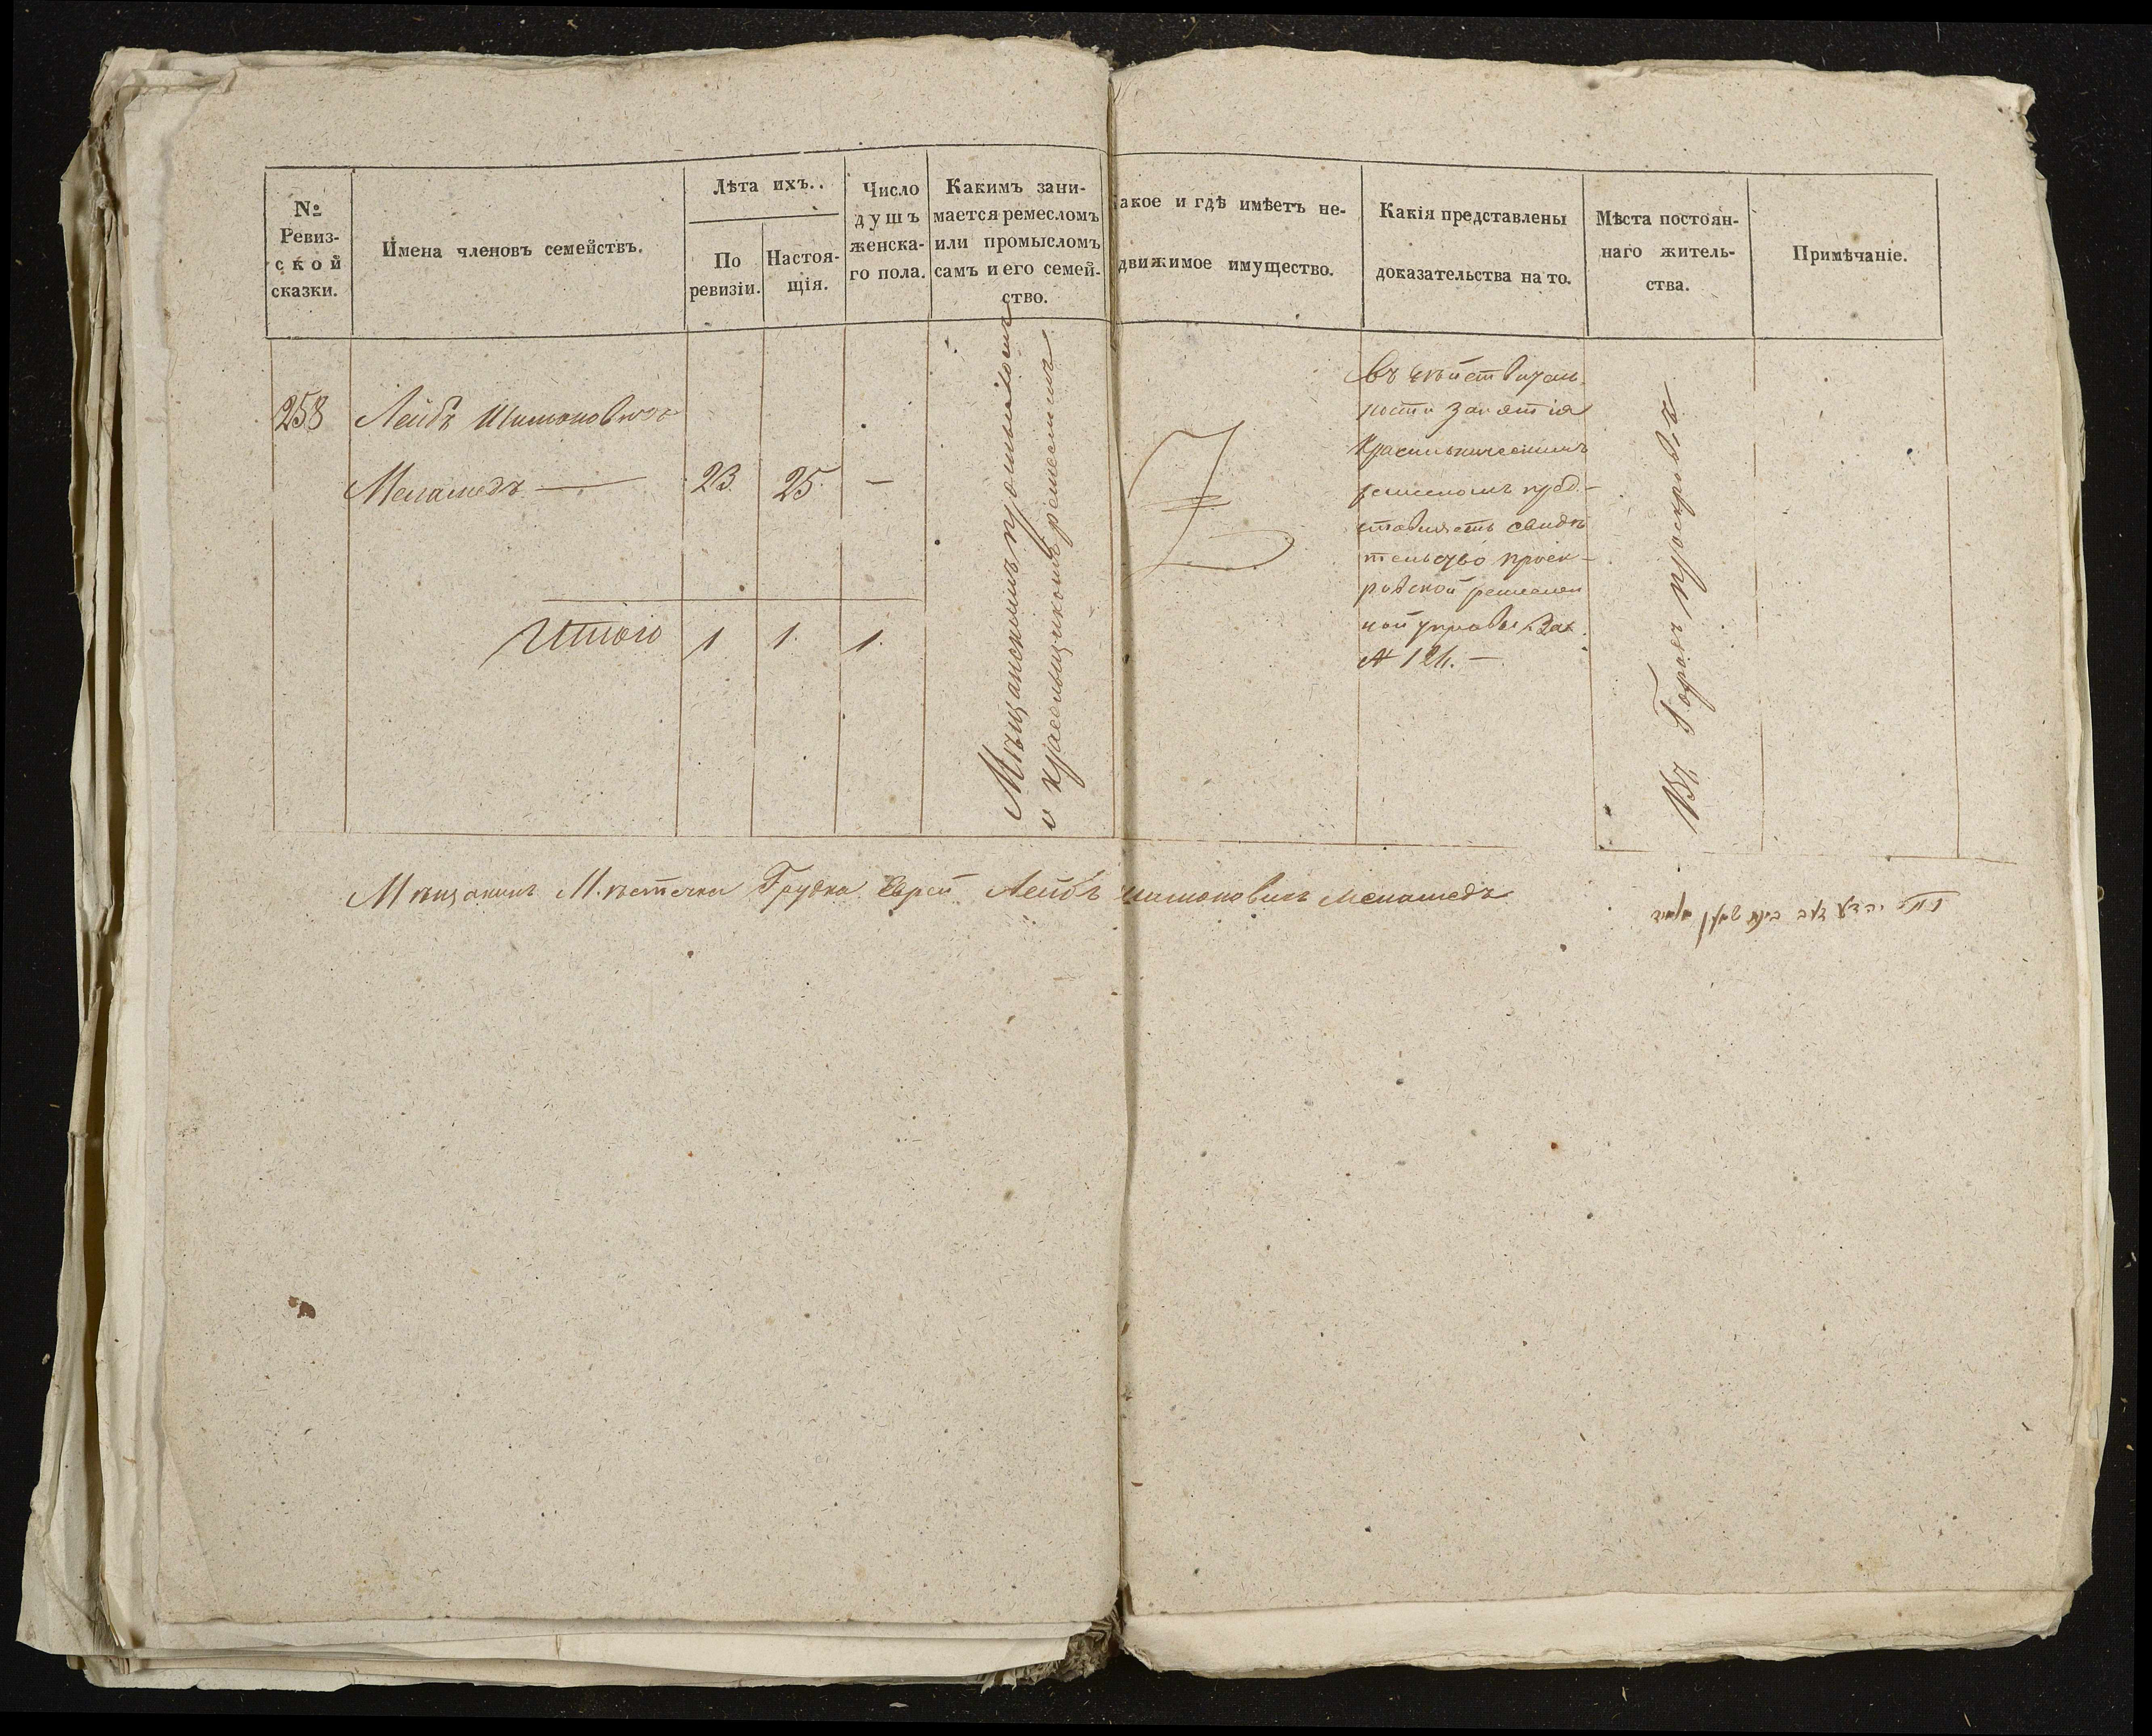 №
Ревиз-
ской
сказки.
Имена членовъ семействъ.
Лѣта ихъ..
По
ревизіи.
Настоя-
щія.
Число
душъ
женска-
го пола.
Какимъ зани-
мается ремесломъ
или промысломъ
самъ и его семей-
ство.
акое и гдѣ имѣетъ не-
движимое имущество.
Какія представлены
доказательства на то.
Мѣста постоян-
наго житель-
ства.
Примѣчаніе.
258 Лейбъ Шимоновичъ
Меламедъ — 23. 25. —
Итого 1 1. 1.
Мѣщанскимъ промысломъ
и красильщикомъ ремесломъ
въ дѣйствитель-
ности занятія
красильническимъ
ремесломъ пред-
ставляетъ свидѣ
тельство проск-
ровской ремеслен
ной управы за
№ 121. —
Въ Городѣ Проскуровѣ
Мѣщанинъ Мѣстечка Еврей Лейбъ Шимоновичъ Меламедъ